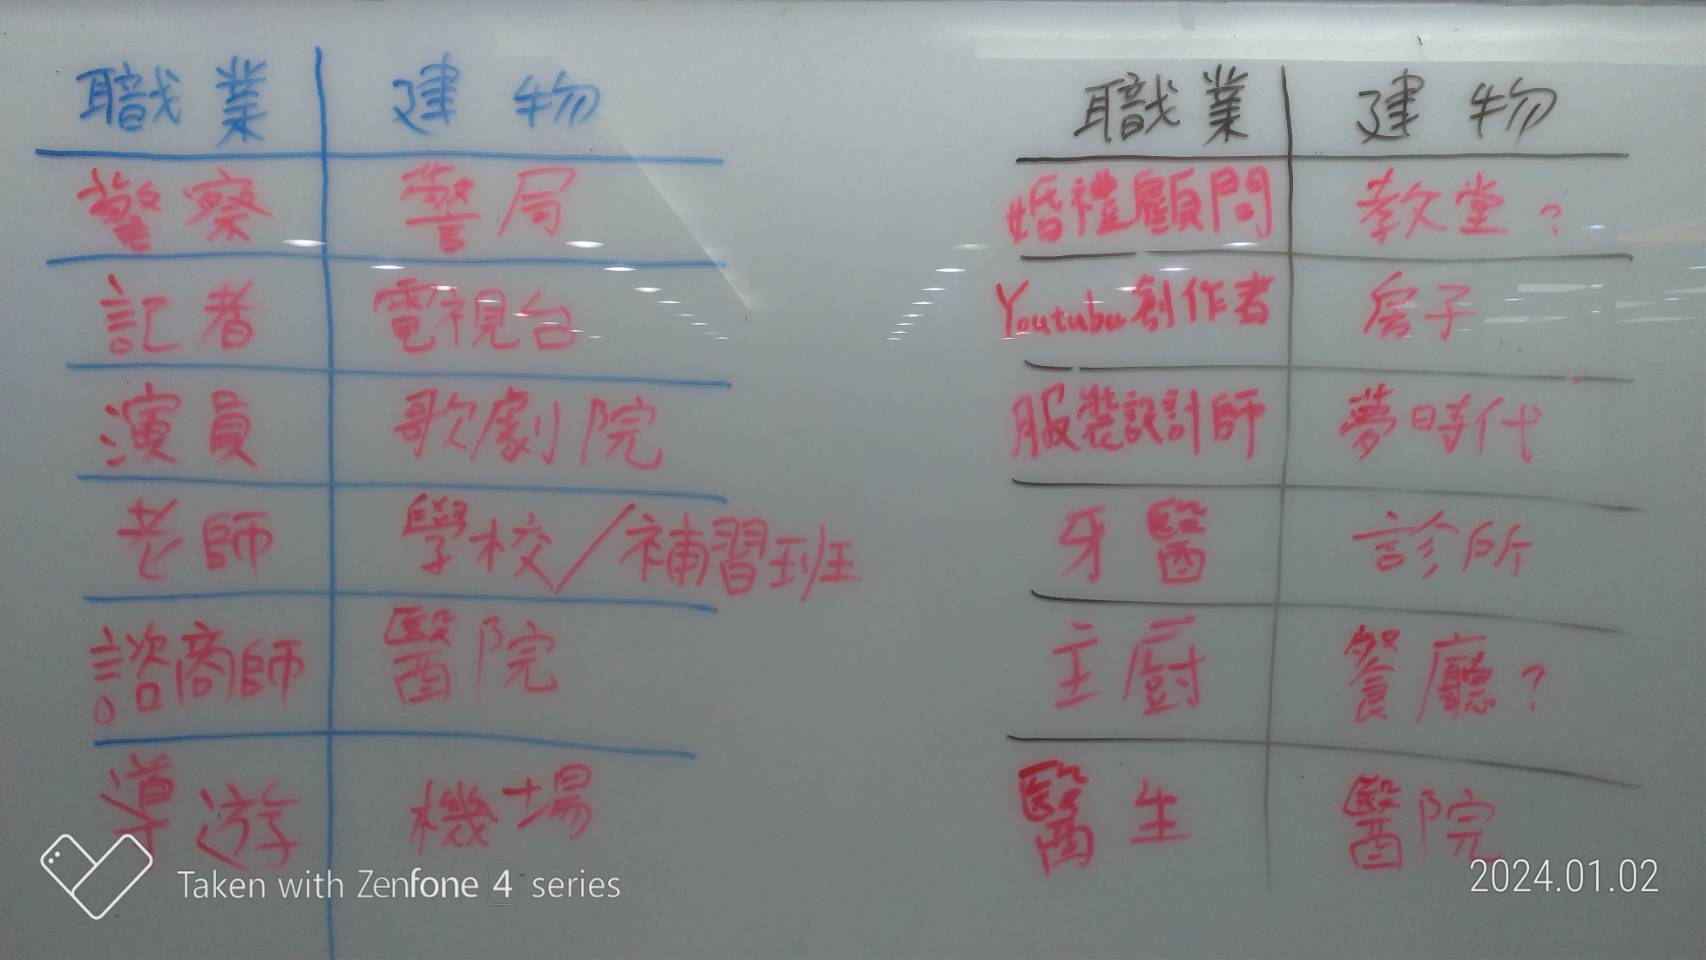 職業 建物
警察 警局
記者 電視台
演員 歌劇院
老師 學校/補習班
諮商師 醫院
導遊 機場
職業 建物
婚禮顧問 教堂?
Youtuber創作者 房子
服裝設計師 夢時代
牙醫 診所
主廚 餐廳?
醫生 醫院
Taken with Zenfone 4 series
2024.01.02